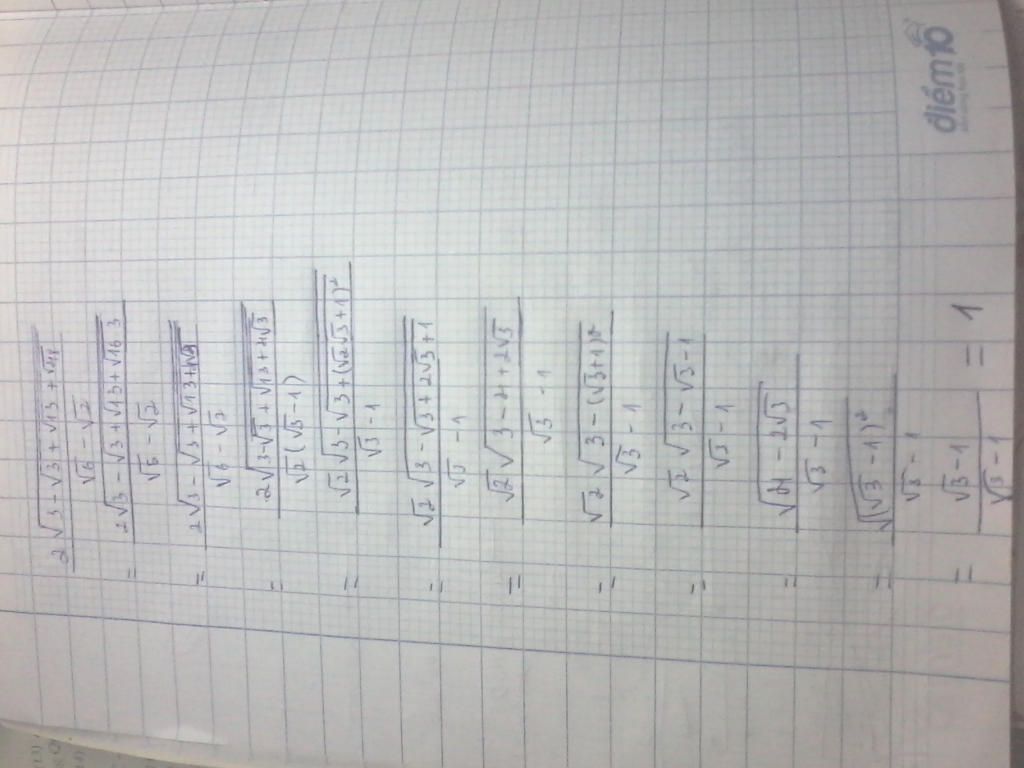 2√3 - √3 + √13 + √48
√6 - √2
= 2√3 - √3 + √13 + √16 3
√6 - √2
= 2√3 - √3 + √13 + 4√3
√6 - √2
= 2√3 - √3 + √13 + 4√3
√2 (√3 - 1)
= √2 √3 - √3 + (√2√3 + 1)²
√3 - 1
= √2 √3 - √3 + 2√3 + 1
√3 - 1
= √2 √3 - 4 + 2√3
√3 - 1
= √2 √3 - (√3 + 1)²
√3 - 1
= √2 √3 - √3 - 1
√3 - 1
= √4 - 2√3
√3 - 1
= √(√3 - 1)²
√3 - 1
= √3 - 1 = 1
√3 - 1
điểm10